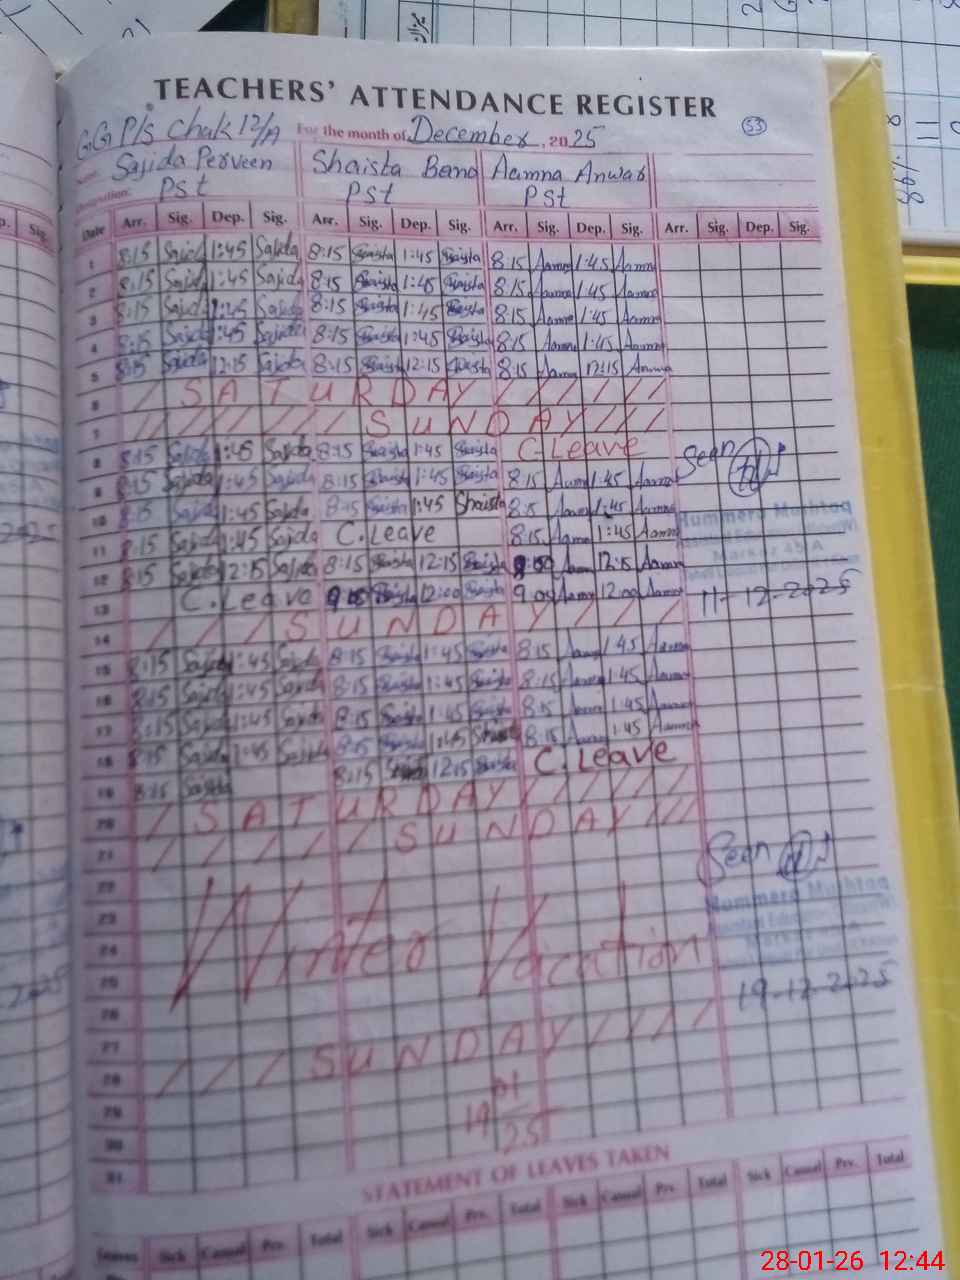 TEACHERS' ATTENDANCE REGISTER
GG P/S Chak 12/A For the month of December, 2025 53
Name: Sajida Perveen Shaista Bano Aamna Anwar
Pst Pst Pst
Date Arr. Sig. Dep. Sig. Arr. Sig. Dep. Sig. Arr. Sig. Dep. Sig. Arr. Sig. Dep. Sig.
1 8:15 Sajid 1:45 Sajida 8:15 Shaista 1:45 Shaista 8:15 Aamna 1:45 Aamna
2 8:15 Sajid 1:45 Sajida 8:15 Shaista 1:45 Shaista 8:15 Aamna 1:45 Aamna
3 8:15 Sajid 1:45 Sajida 8:15 Shaista 1:45 Shaista 8:15 Aamna 1:45 Aamna
4 8:15 Sajida 1:45 Sajida 8:15 Shaista 1:45 Shaista 8:15 Aamna 1:45 Aamna
5 8:15 Sajida 12:15 Sajida 8:15 Shaista 12:15 Shaista 8:15 Aamna 12:15 Anwar
6 SATURDAY
7 SUNDAY
8 8:15 Sajida 1:45 Sajida 8:15 Shaista 1:45 Shaista C.Leave Seen
9 8:15 Sajida 1:45 Sajida 8:15 Shaista 1:45 Shaista 8:15 Aamna 1:45 Aamna
10 8:15 Sajida 1:45 Sajida 8:15 Shaista 1:45 Shaista 8:15 Aamna 1:45 Aamna
Hummera Mushtaq
11 8:15 Sajida 1:45 Sajida C.Leave 8:15 Aamna 1:45 Aamna
Markaz 45/A
12 8:15 Sajida 12:15 Sajida 8:15 Shaista 12:15 Shaista Aamna 12:15 Aamna
11-12-2025
13 C.Leave Shaista 12:00 Shaista 9:05 Aamna 12:00 Aamna
14 SUNDAY
15 8:15 Sajida 1:45 Sajida 8:15 Shaista 1:45 Shaista 8:15 Aamna 1:45 Aamna
16 8:15 Sajida 1:45 Sajida 8:15 Shaista 1:45 Shaista 8:15 Aamna 1:45 Aamna
17 8:15 Sajida 1:45 Sajida 8:15 Shaista 1:45 Shaista 8:15 Aamna 1:45 Aamna
18 8:15 Sajida 1:45 Sajida 8:15 Shaista 1:45 Shaista 8:15 Aamna 1:45 Aamna
19 8:15 8:15 12:15 Shaista C.Leave
20 SATURDAY
21 SUNDAY
Seen
22
Hummera Mushtaq
23
24 Winter Vacation
25
19-12-2025
26
27
28 SUNDAY
29
19 01/25
30
31
STATEMENT OF LEAVES TAKEN
Leaves Sick Casual Prv. Total Sick Casual Prv. Total Sick Casual Prv. Total Sick Casual Prv. Total
28-01-26 12:44